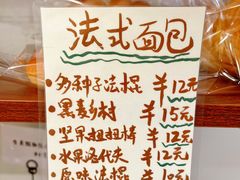 法式面包
·多种子法棍 ¥12元
·黑麦乡村 ¥15元
·坚果扭扭棒 ¥12元
·水果洛代夫 ¥12元
原味法棍